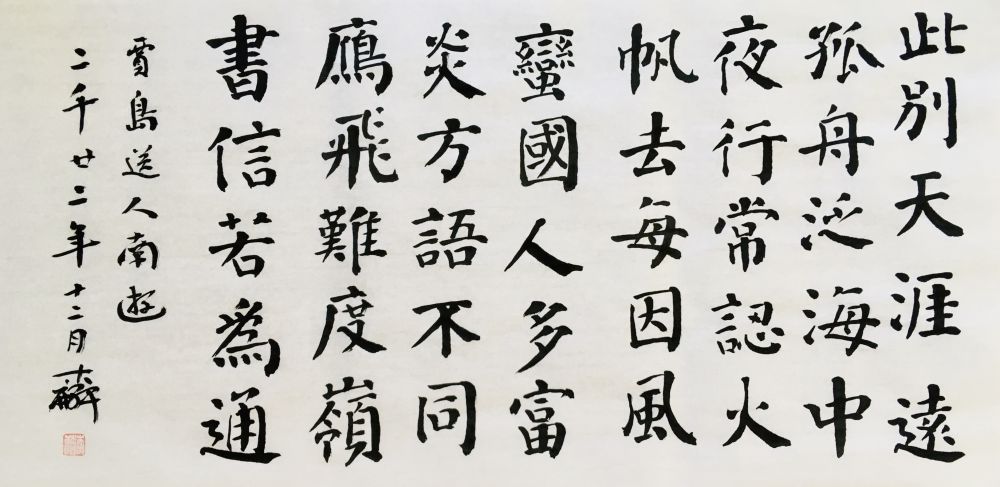 此別天涯遠
孤舟泛海中
夜行常認火
帆去每因風
蠻國人多富
炎方語不同
鴈飛難度嶺
書信若為通
賈島送人南遊
二千廿二年十二月麟